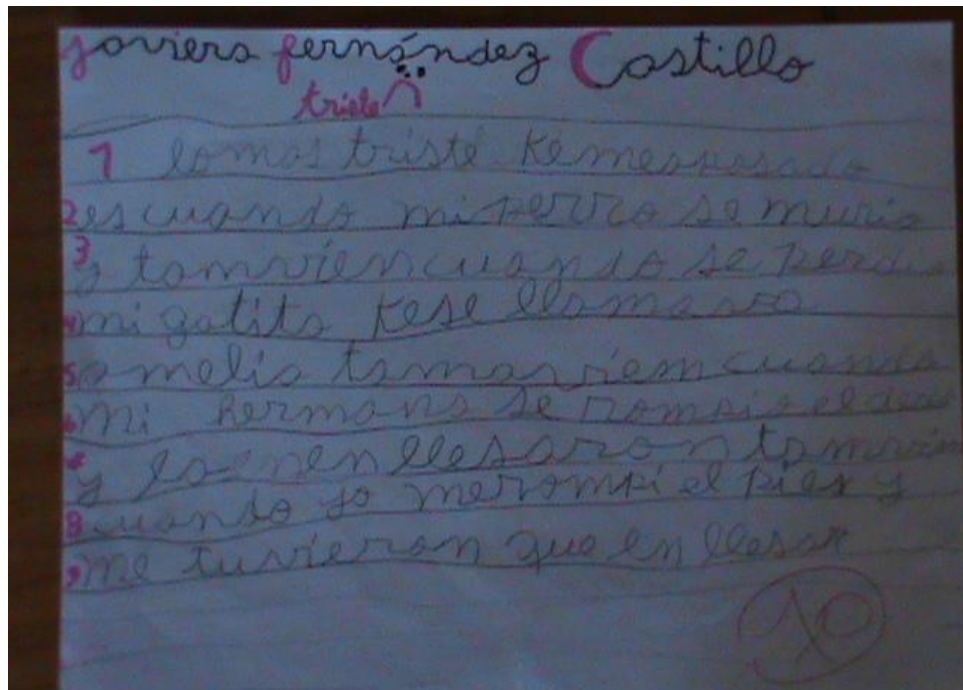 Javiera fernández Castillo
triste
1 lo mas triste Ke me apasado
2 es cuando mi perro se murio
3 y tamvien cuando se perdio
4 mi gatito Ke se llamava
5 amelia tamavien cuando
6 mi hermano se rompio el dedo
7 y lo enenllesaron tamvien
8 cuando yo me rompi el pies y
9 me tuvieron que en llesar
10